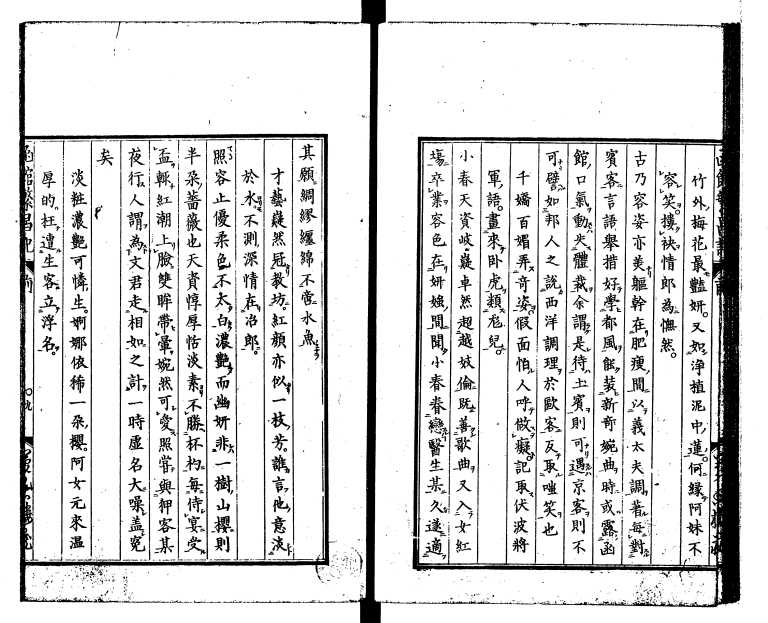 竹外梅花最豔妍。又如淨植泥中蓮。何緣阿妹不
容笑。摟袂情郎為憮然。
古乃容姿亦美軀幹在肥瘦間以義太夫調著每對
賓客言語舉措好學都風飾裝新奇婉曲時或露函
館口氣動失體裁余謂是待土賓則可遇京客則不
可譬如邦人之說西洋調理於歐客反取嗤笑也
千嬌百媚弄奇姿。假面怕人呼做癡。記取伏波將
軍語。畫來臥虎類尨兒。
小春天資岐嶷卓然超越妓倫既善歌曲又入女紅
塲卒業容色在妍媸間聞小春眷戀醫生某久遂適
其願綢繆纏綿不啻水魚
才藝嶷然冠教坊。紅顏亦似一枝芳。誰言他意淡
於水。不測深情在冶郎。
照容止優柔色不太白濃艷而幽妍非一樹山櫻則
半朶薔薇也天資惇厚恬淡素不勝杯杓每侍宴受
盃輒紅潮上臉雙眸帶暈婉然可愛照嘗與狎客某
夜行人謂為文君走相如之計一時虛名大噪盖冤
矣
淡粧濃艷可憐生。婀娜依稀一朶櫻。阿女元來溫
厚的。枉遭生客立浮名。